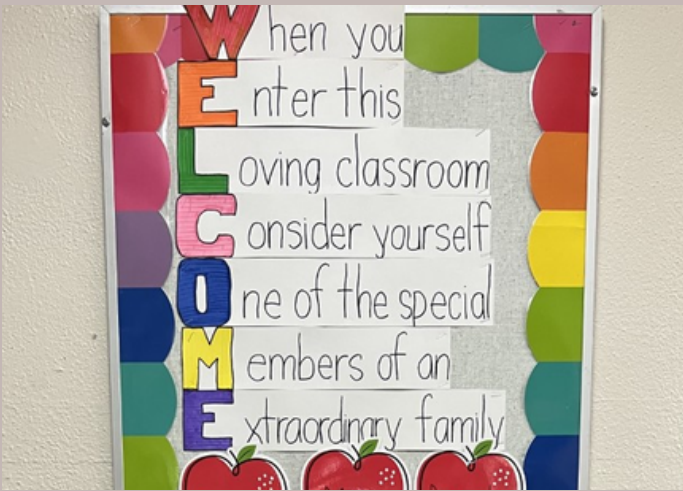 When you
Enter this
Loving classroom
Consider yourself
One of the special
Members of an
Extraordinary family